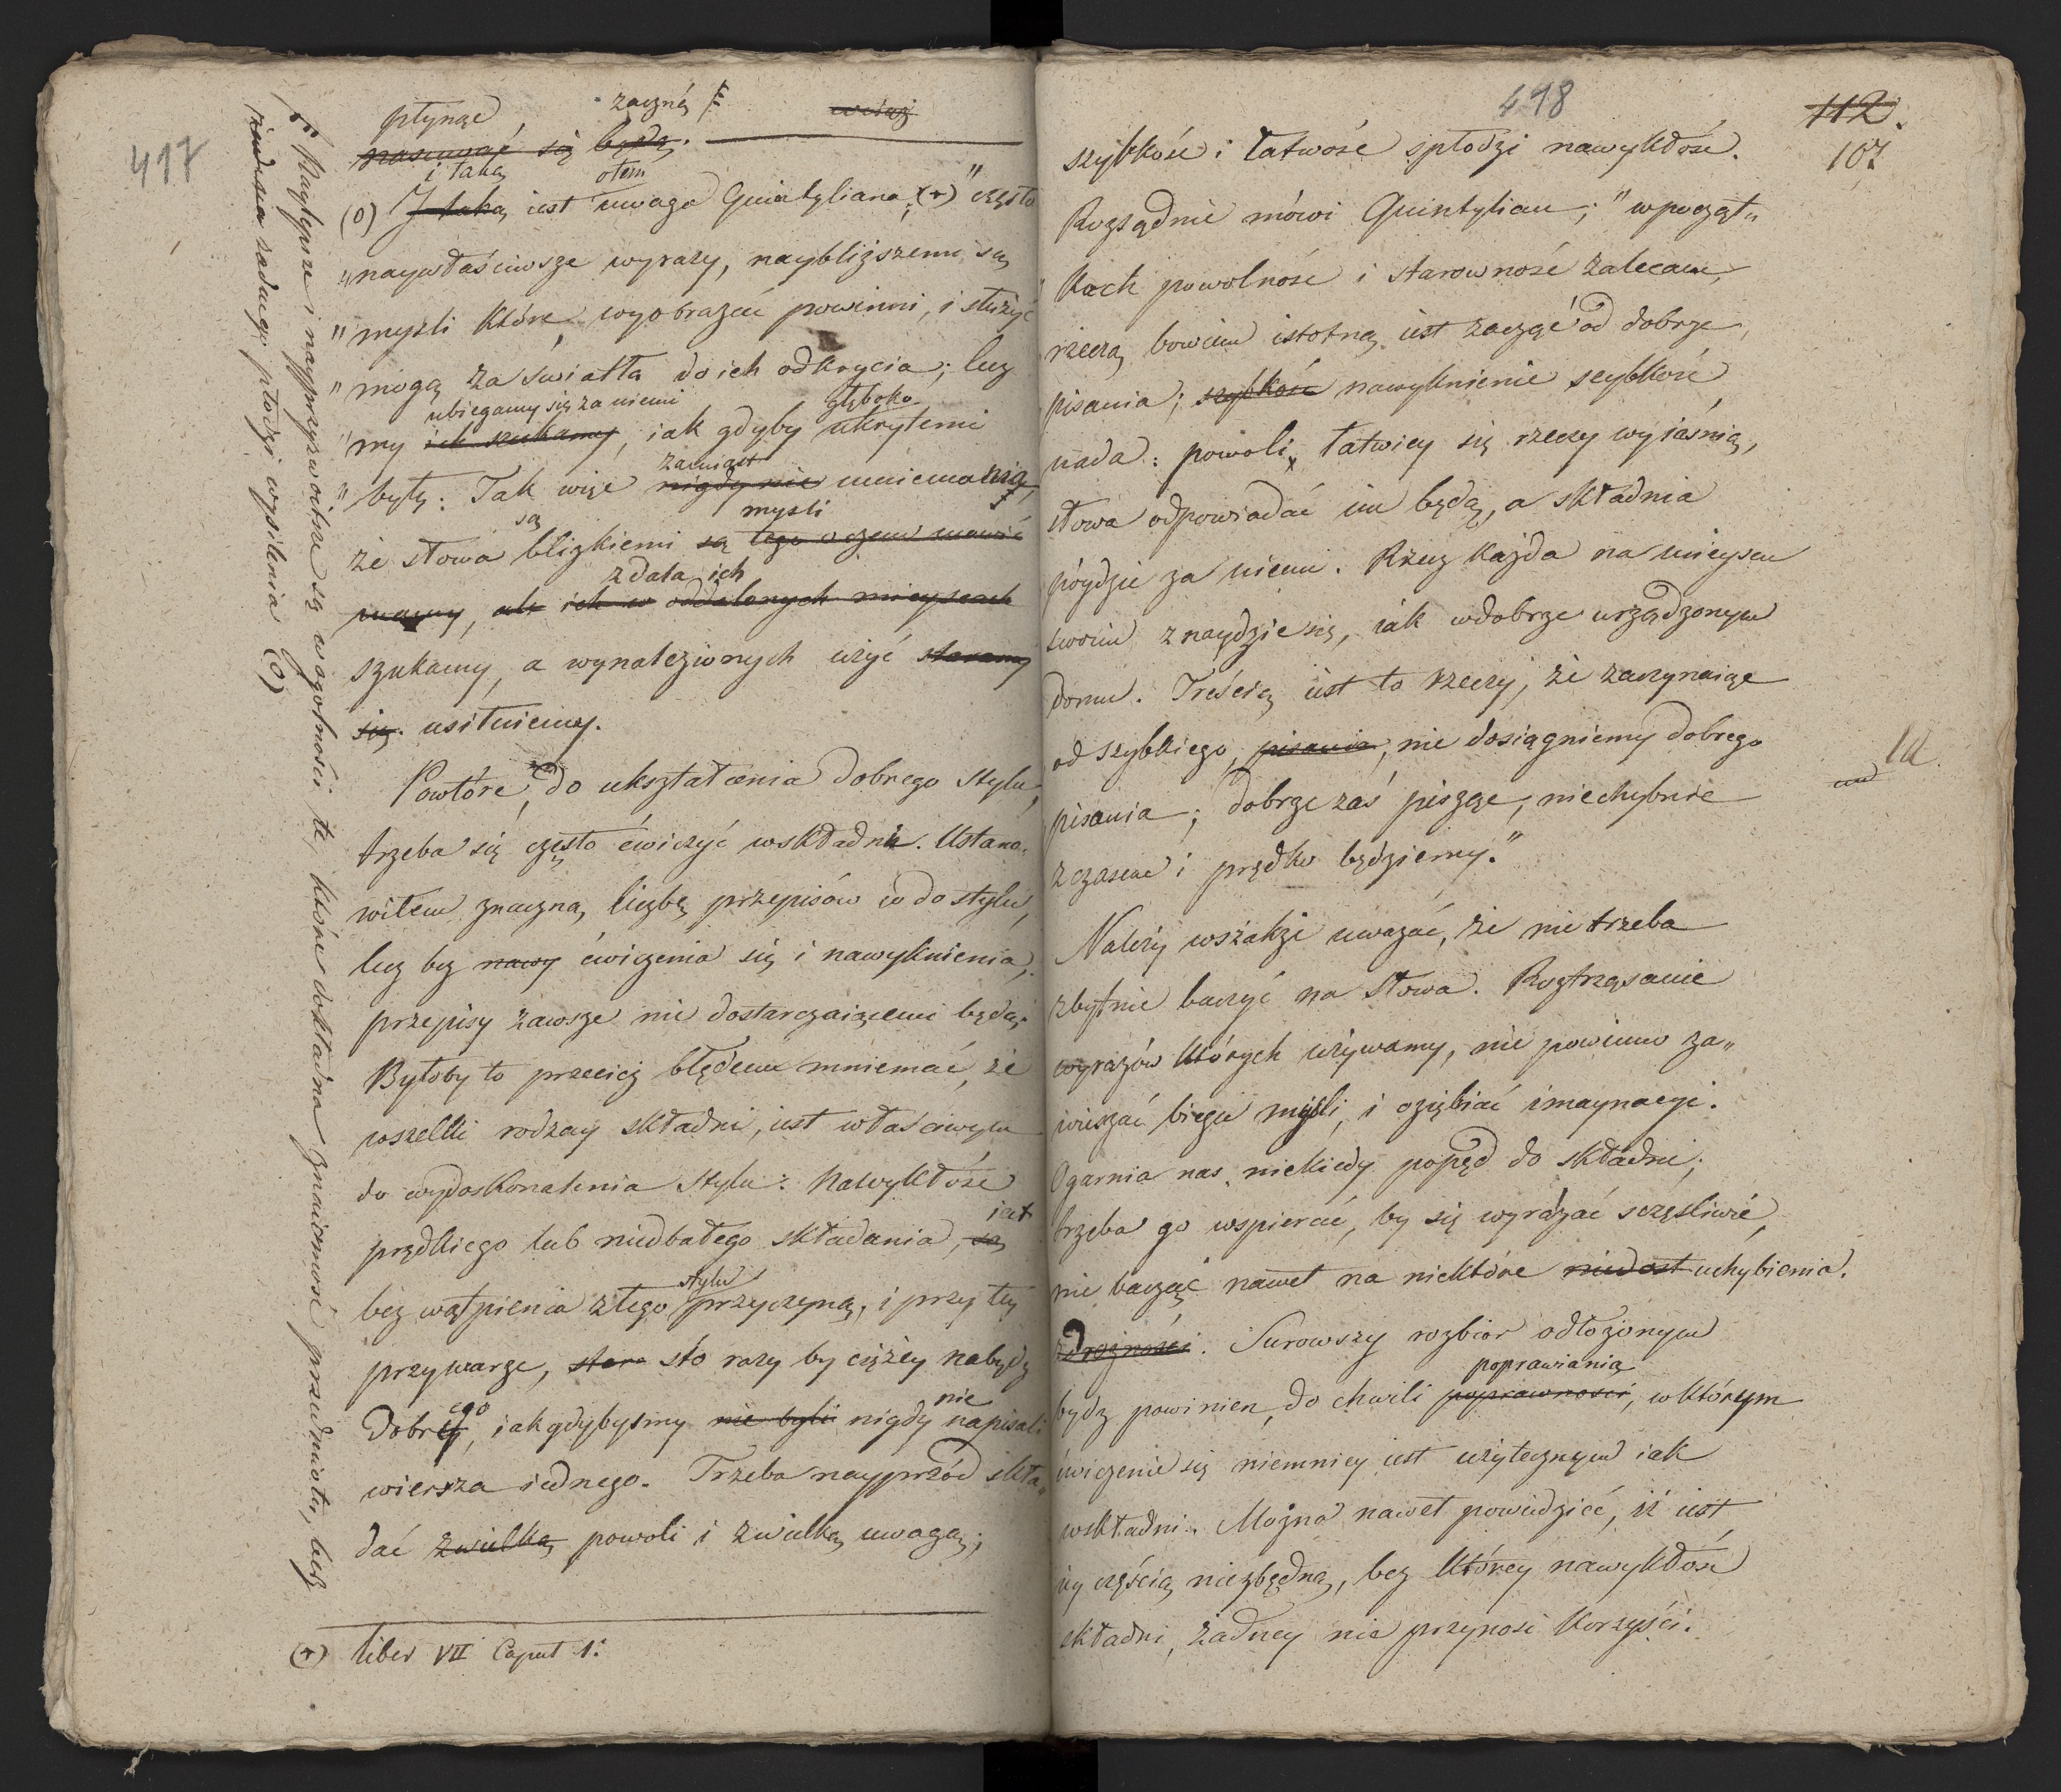 417
płynąć zaczną wciąż
nasuwać się będą.
i taką otem
(0) I taką iest uwaga Quintyliana; (+) "często
"naywłaściwsze wyrazy, naybliższemi są
"myśli które wyobrażać powinni, i służyć
"mogą za światła do ich odkrycia; lecz
ubiegamy się za niemi głęboko
"my ich szukamy, iak gdyby ukrytemi
zamiast
"były. Tak więc nigdy nie mniemania,
są myśli
że słowa blizkiemi są tego o czem mówić
zdala ich
mamy, ale ich w oddalonych mieyscach
szukamy, a wynalezionych użyć staramy
się usiłuiemy.
Powtóre, do ukształcenia dobrego stylu,
trzeba się często ćwiczyć w składni. Ustano-
wiłem znaczną liczbę przepisów co do stylu,
lecz bez nawy ćwiczenia się i nawyknienia,
przepisy zawsze nie dostarczaiącemi będą;
Byłoby to przecież błędem mniemać, że
wszelki rodzay składni, iest właściwym
do wydoskonalenia stylu: Nawykłość
iest
prędkiego lub niedbałego składania, są
stylu
bez wątpienia złego przyczyną, i przy tey
przywarze, star sto razy by ciężey nabydź
ego nie
dobrey, iak gdybyśmy nie byli nigdy napisali
wiersza iednego. Trzeba nayprzód skła-
dać z wielką powoli i z wielką uwagą;
(+) Liber VII Caput 1.
Naylepsze i nayprzyzwoitsze są w ogólności te, które dokładna znaiomość przedmiotu, bez
żadnego płodzi wysilenia (0)
498
112.
107
szybkość i łatwość spłodzi nawykłość.
Rozsądnie mówi Quintylian; "w począt-
kach powolność i starowność zalecam,
rzeczą bowiem istotną iest zacząć od dobrze
pisania; szybkość nawyknienie szybkość
nada: powoli łatwiey się rzeczy wyiaśnią,
słowa odpowiadać im będą, a składnia
póydzie za niemi. Rzecz każda na mieyscu
swoim znaydzie się, iak w dobrze urządzonym
domu. Treścią iest to rzeczy, że zaczynaiąc
od szybkiego pisania, nie dosiągniemy dobrego
pisania; dobrze zaś pisząc, niechybnie
z czasem i prędko będziemy."
Należy wszakże uważać, że nie trzeba
zbytnie baczyć na słowa. Roztrząsanie
wyrazów których używamy, nie powinno za-
wieszać biegu myśli, i oziębiać imaynacyi.
Ogarnia nas niekiedy popęd do składni;
trzeba go wspierać, by się wyrażać szczęśliwie,
nie bacząc nawet na niektóre niedost uchybienia.
zdrożności. Surowszy rozbiór odłożonym
poprawiania
bydź powinien, do chwili poprawności, w którym
ćwiczenie się niemniey iest użytecznym iak
w składni. Można nawet powiedzieć, iż iest
iey częścią niezbędną, bez którey nawykłość
składni, żadney nie przynosi korzyści.